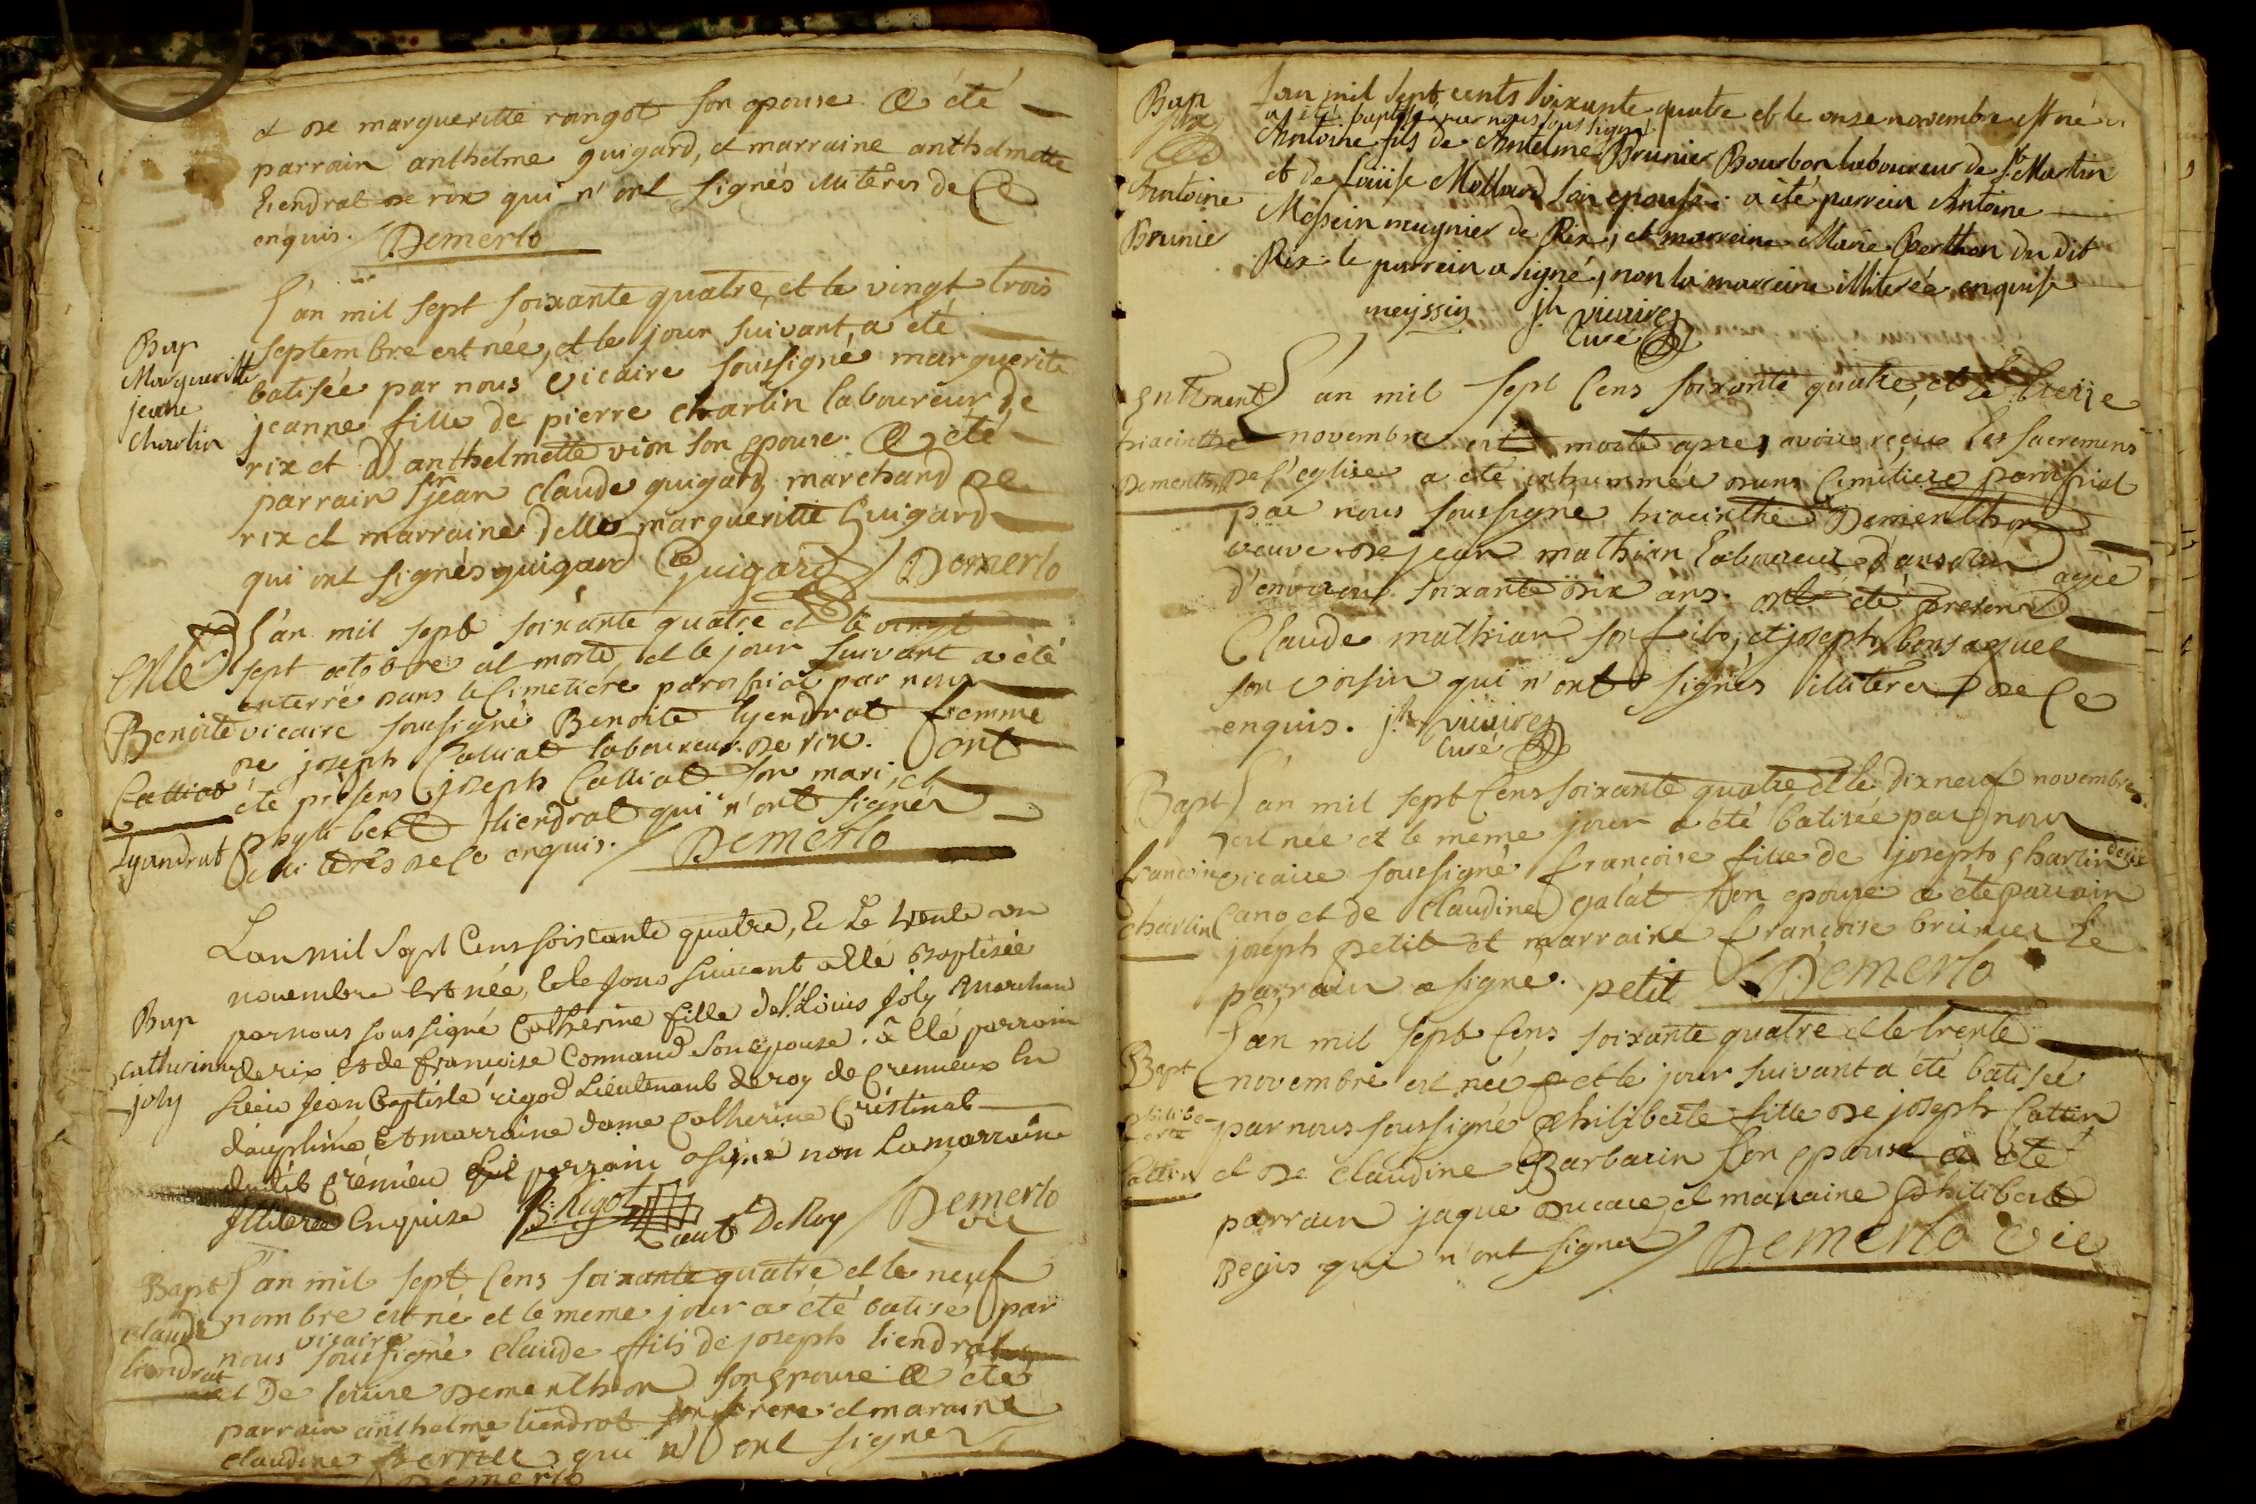 et de margueritte rongot son epouse. a été
parrain anthelme guigard, et marraine anthelmette
liendrat de rix qui n'ont signés illiterés de ce
enquis. Demerlo
L'an mil sept soixante quatre, et le vingt trois
Bap septembre est née, et le jour suivant, a été
Margueritte batisée par nous vicaire soussigné marguerite
jeanne jeanne fille de pierre charlin laboureur de
Charlin rix et d'anthelmette vion son epouse. a été
parrain Sr jean claude guigard marchand de
rix et marraine delle margueritte Guigard
qui ont signés guigard Guigard Demerlo
L'an mil sept soixante quatre et le vingt
sept octobre est morte, et le jour suivant a été
enterré dans le Cimetiere paroissial par nous
Benoite vicaire soussigné Benoite lyendrat femme
de joseph Calliat laboureur de rix. ont
Calliat été présens joseph Calliat son mari, et
Lyandrat philibert liendrat qui n'ont signés
illiterés de ce enquis. Demerlo
L'an mil Sept Cens soixante quatre, Et Le trente un
novembre Est née, Et le Jour suivant a Eté Baptisée
Bap par nous soussigné Catherine fille de Sr Louis Joly Marchand
Catherinne de rix et de françoise Connand son epouse. à Eté parrain
joly Sieur Jean Baptiste rigod Lieutenant de roy de Cremieux En
dauphiné Et marraine dame Catherine Cristinal
dudit Crémieu Le parrain a signé non La marraine
Illiterée Enquise B: Rigot Lieut De Roy Demerlo
vic
Bapt L'an mil sept Cens soixante quatre et le neuf
claude nombre est né et le meme jour a été batisé par
vicaire
liendrat nous soussigné claude fils de joseph liendrat
et De louise dementhon son epouse. a été
parrain anthelme liendrat son frere et maraine
claudine perrier qui n'ont signer
Demerlo
Bap L'an mil sept cents soixante quatre et le onze novembre est né
a été baptisé par nous sous signé
Antoine fils de Antelme Brunier Bourbon laboureur de St Martin
Antoine et de Louise Mollard son epouse. a été parrein Antoine
Brunier Messein meynier de Rix, et marreine Marie Berthon du dit
Rix. le parrein a signé, non la marreine illiterée enquise
meyssin jh viuiire
Curé
Enterrement L'an mil Sept Cens soixante quatre, et Le treize
hiacinthe novembre est morte apres avoir reçue les sacremens
Dementhon De l'eglise a été inhummée dans Cimitiere paroissial
par nous soussigné hiacinthe Dementhon
veuve de jean mathian laboureur agée
d'environ soixante dix ans. ont été presens
Claude mathian son fils, et joseph bonsaque
son voisin qui n'ont signés illiterés de ce
enquis. jh viuiire
Curé
Bapt L'an mil sept Cens soixante quatre et le dixneuf novembre
est née et le meme jour a été batisée par nous
francoise vicaire soussigné françoise fille de joseph charlin
charlin Cano et de claudine galat son epouse a été parrain
joseph petit et marraine françoise brunier le
parrain a signé. petit Demerlo
L'an mil sept Cens soixante quatre et le trente
Bapt novembre est née et le jour suivant a été batisée
par nous soussigné philiberte fille de joseph Cattin
Cattin et de claudine Barbarin son epouse a été
parrain jaque ducare et maraine philiberte
Begis qui n'ont signer Demerlo Vic